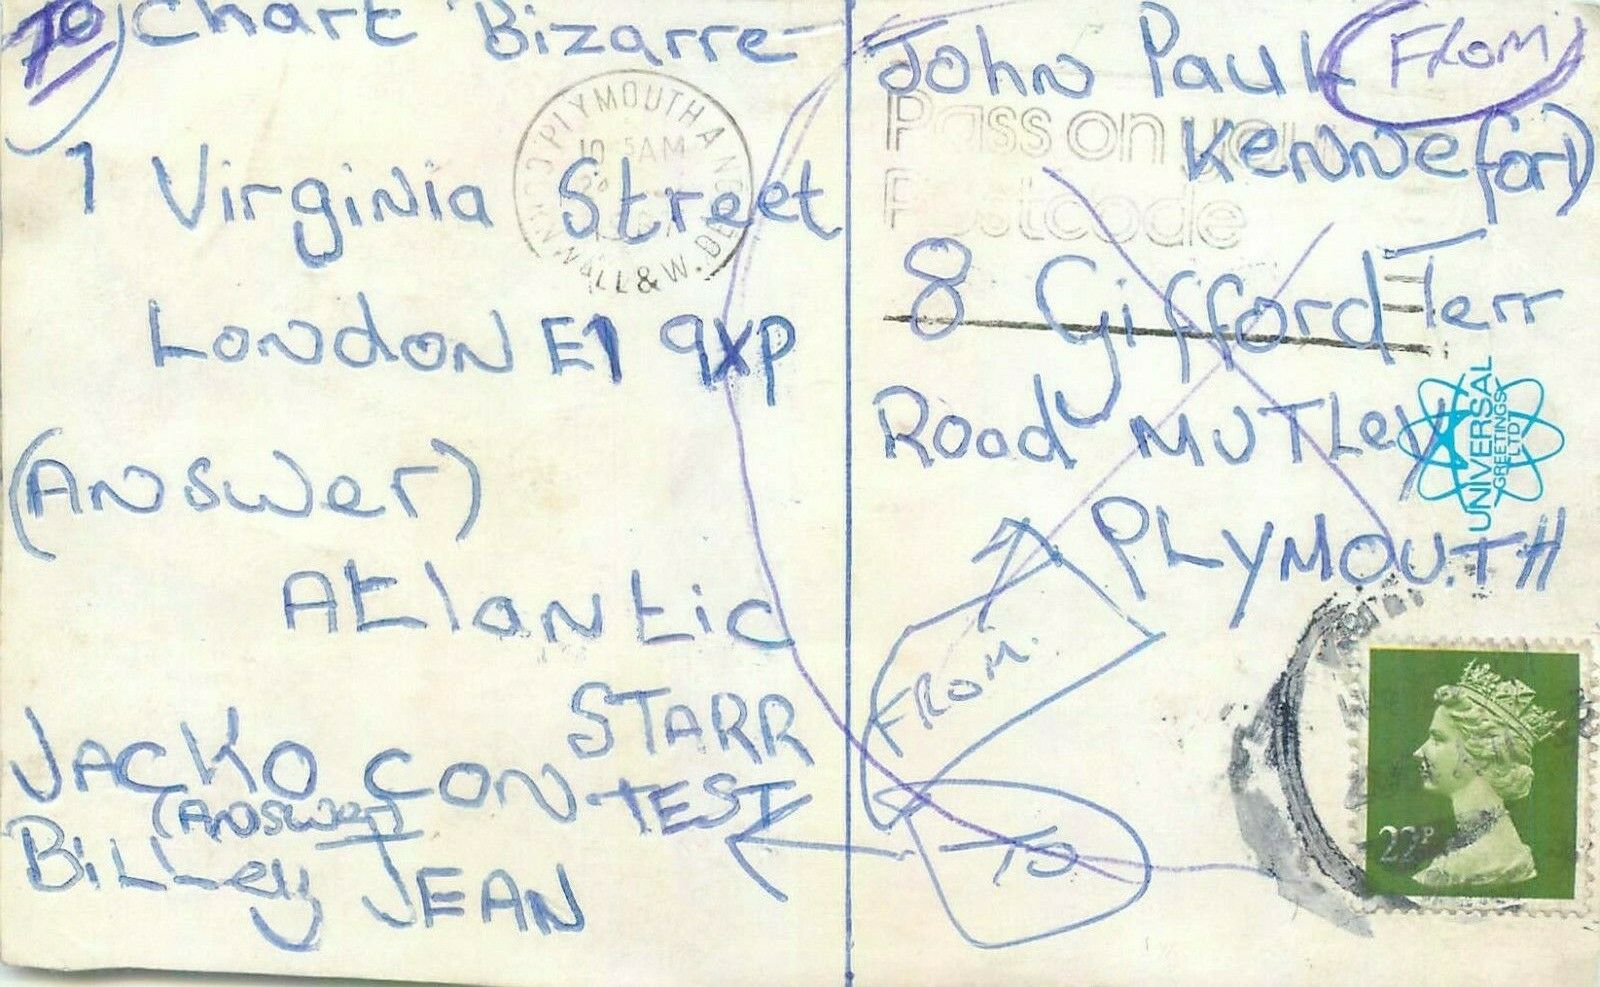 To Chart Bizarre
1 Virginia Street
London E1 9XP
(Answer)
Atlantic
STARR
JACKO CON TEST
(Answer)
BILLey JEAN
John Paul
From
Kenneford
8 Gifford Terr
Road MUTLey
PLYMOUTH
FROM.
To
PLYMOUTH AND
CORNWALL & W. DEVON
AM
Pass on your
Postcode
UNIVERSAL
GREETINGS
LTD
22P